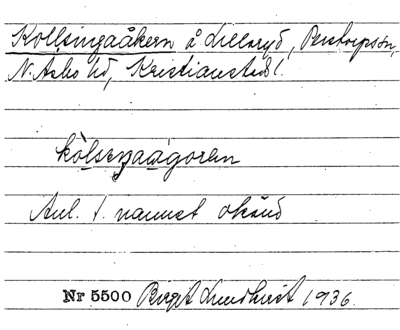 Kollsingaåkern å Lillaryd, Perstorpsn,
N. Åsbo hd, Kristianstad l.
kòlseŋaagoren
Anl. t. namnet okänd
Nr 5500 Birgit Lundkvist 1936.